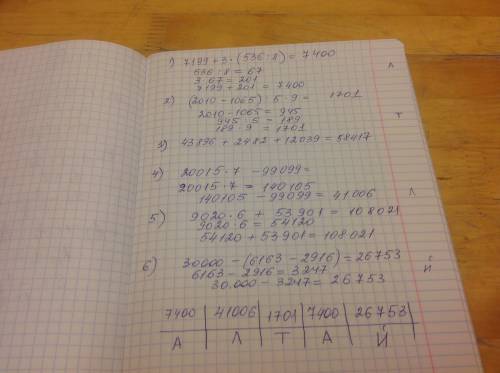 1) 7199 + 3 · (536 : 8) = 7400
536 : 8 = 67
3 · 67 = 201
7199 + 201 = 7400
л
2) (2010 - 1065) : 5 · 9 = 1701
2010 - 1065 = 945
945 : 5 = 189
189 · 9 = 1701
т
3) 43896 + 2482 + 12039 = 58417
4) 20015 · 7 - 99099 =
20015 · 7 = 140105
140105 - 99099 = 41006
л
5) 9020 · 6 + 53901 = 108021
9020 · 6 = 54120
54120 + 53901 = 108.021
6) 30000 - (6163 - 2916) = 26753
й
6163 - 2916 = 3247
30.000 - 3247 = 26753
7400 | 41006 | 1701 | 7400 | 26753
А | Л | Т | А | Й